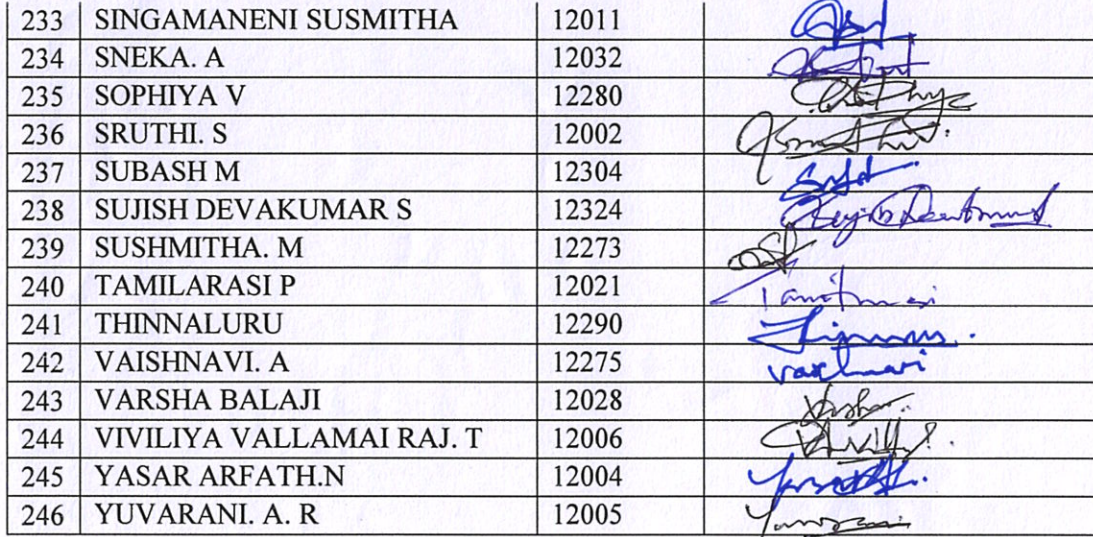 233 SINGAMANENI SUSMITHA 12011
234 SNEKA. A 12032
235 SOPHIYA V 12280
236 SRUTHI. S 12002
237 SUBASH M 12304
238 SUJISH DEVAKUMAR S 12324
239 SUSHMITHA. M 12273
240 TAMILARASI P 12021
241 THINNALURU 12290
242 VAISHNAVI. A 12275
243 VARSHA BALAJI 12028
244 VIVILIYA VALLAMAI RAJ. T 12006
245 YASAR ARFATH.N 12004
246 YUVARANI. A. R 12005